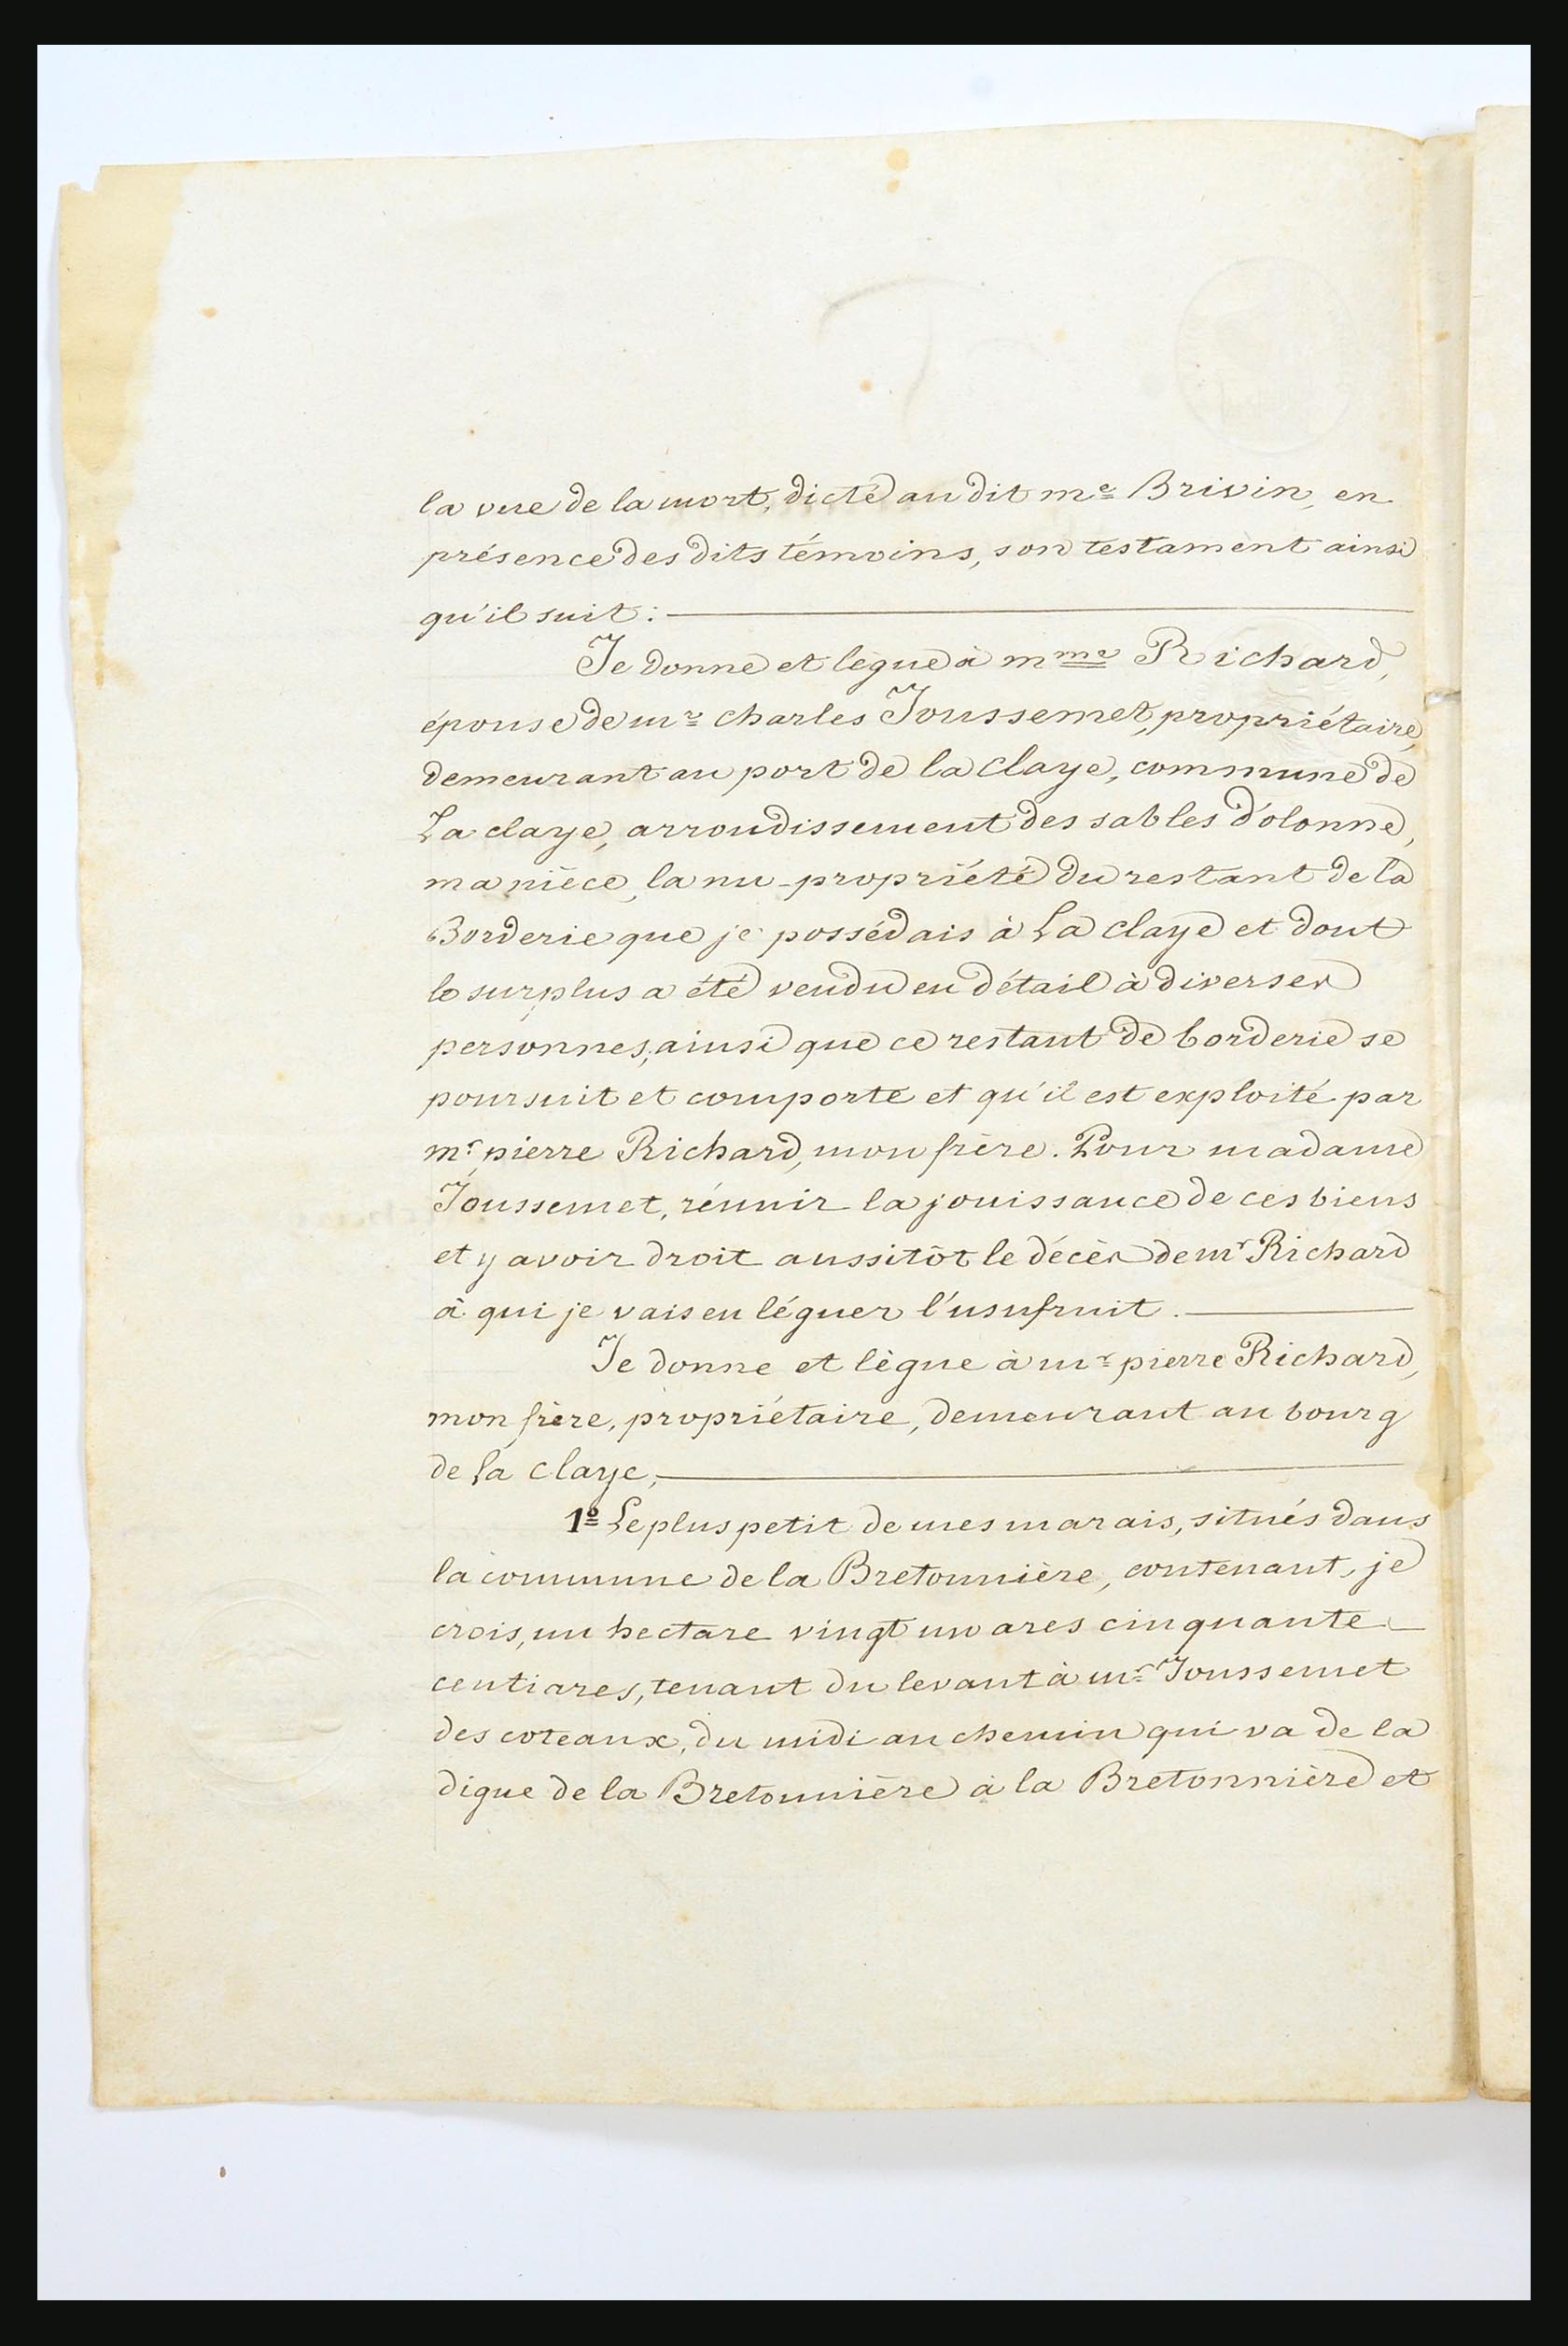 la vue de la mort, dicté au dit me Brivin, en
présence des dits témoins, son testament ainsi
qu'il suit :
Je donne et lègue à mme Richard,
épouse de mr charles Joussemet, propriétaire,
demeurant au port de la claye, commune de
La claye, arrondissement des sables d'olonne,
ma nièce, la nu-propriété du restant de la
Borderie que je possédais à La claye et dont
le surplus a été vendu en détail à diverses
personnes, ainsi que ce restant de borderie se
poursuit et comporte et qu'il est exploité par
mr pierre Richard, mon frère. Pour madame
Joussemet, réunir la jouissance de ces biens
et y avoir droit aussitôt le décès de mr Richard
à qui je vais en léguer l'usufruit.
Je donne et lègue à mr pierre Richard,
mon frère, propriétaire, demeurant au bourg
de La claye,
1o Le plus petit de mes marais, situés dans
la commune de la Bretonnière, contenant, je
crois, un hectare vingt un ares cinquante
centiares, tenant du levant à mr Joussemet
des coteaux, du midi au chemin qui va de la
digue de la Bretonnière à la Bretonnière et